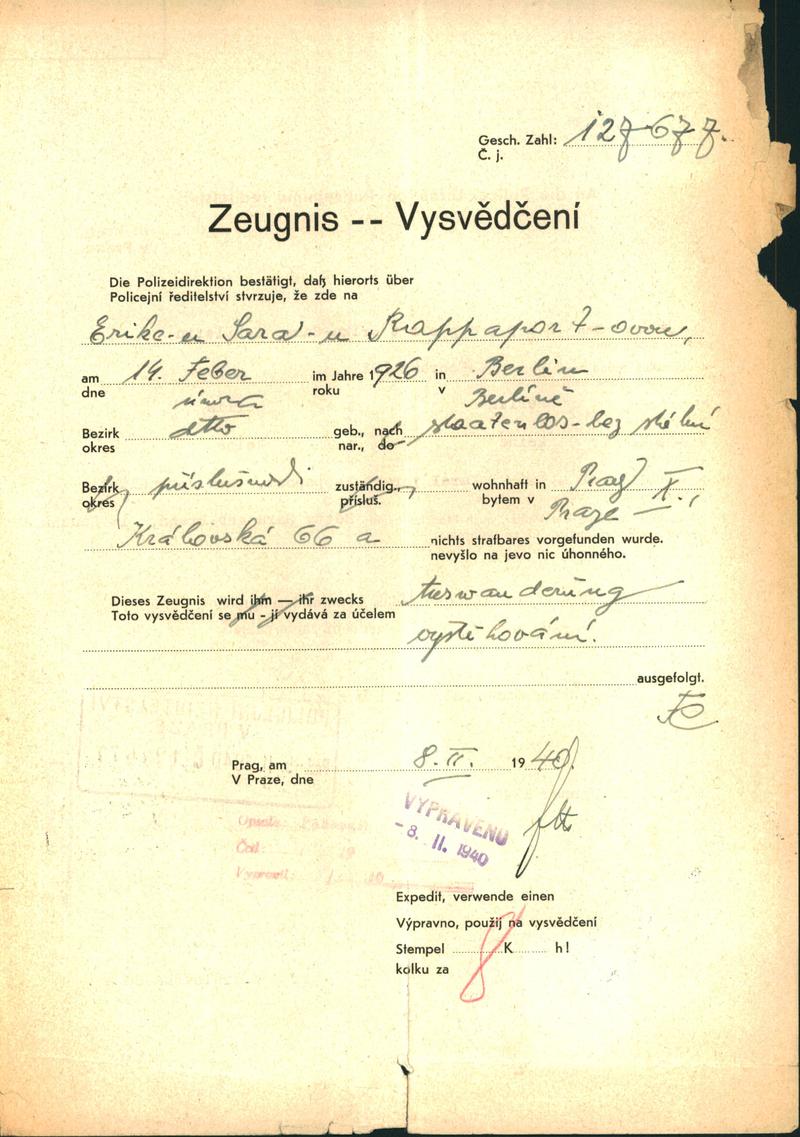 Gesch. Zahl: 127677.
Č. j.
Zeugnis -- Vysvědčení
Die Polizeidirektion bestätigt, daß hierorts über
Policejní ředitelství stvrzuje, že zde na
Erike-u Sara-u Rappaport-ovou,
am 14. Feber im Jahre 1926 in Berlin
dne února roku v Berlíně
Bezirk detto geb., nach staatenlos - bez státní
okres nar., do
Bezirk příslušnosti zuständig., wohnhaft in Prag X.,
okres přísluš. bytem v Praze
Královská 66 a nichts strafbares vorgefunden wurde.
nevyšlo na jevo nic úhonného.
Dieses Zeugnis wird ihm — ihr zwecks Auswanderung
Toto vysvědčení se mu - jí vydává za účelem
vystěhování.
ausgefolgt.
Prag, am 8. II. 1940.
V Praze, dne
VYPRAVENO
- 8. II. 1940
Expedit, verwende einen
Výpravno, použij na vysvědčení
Stempel 8 K h!
kolku za